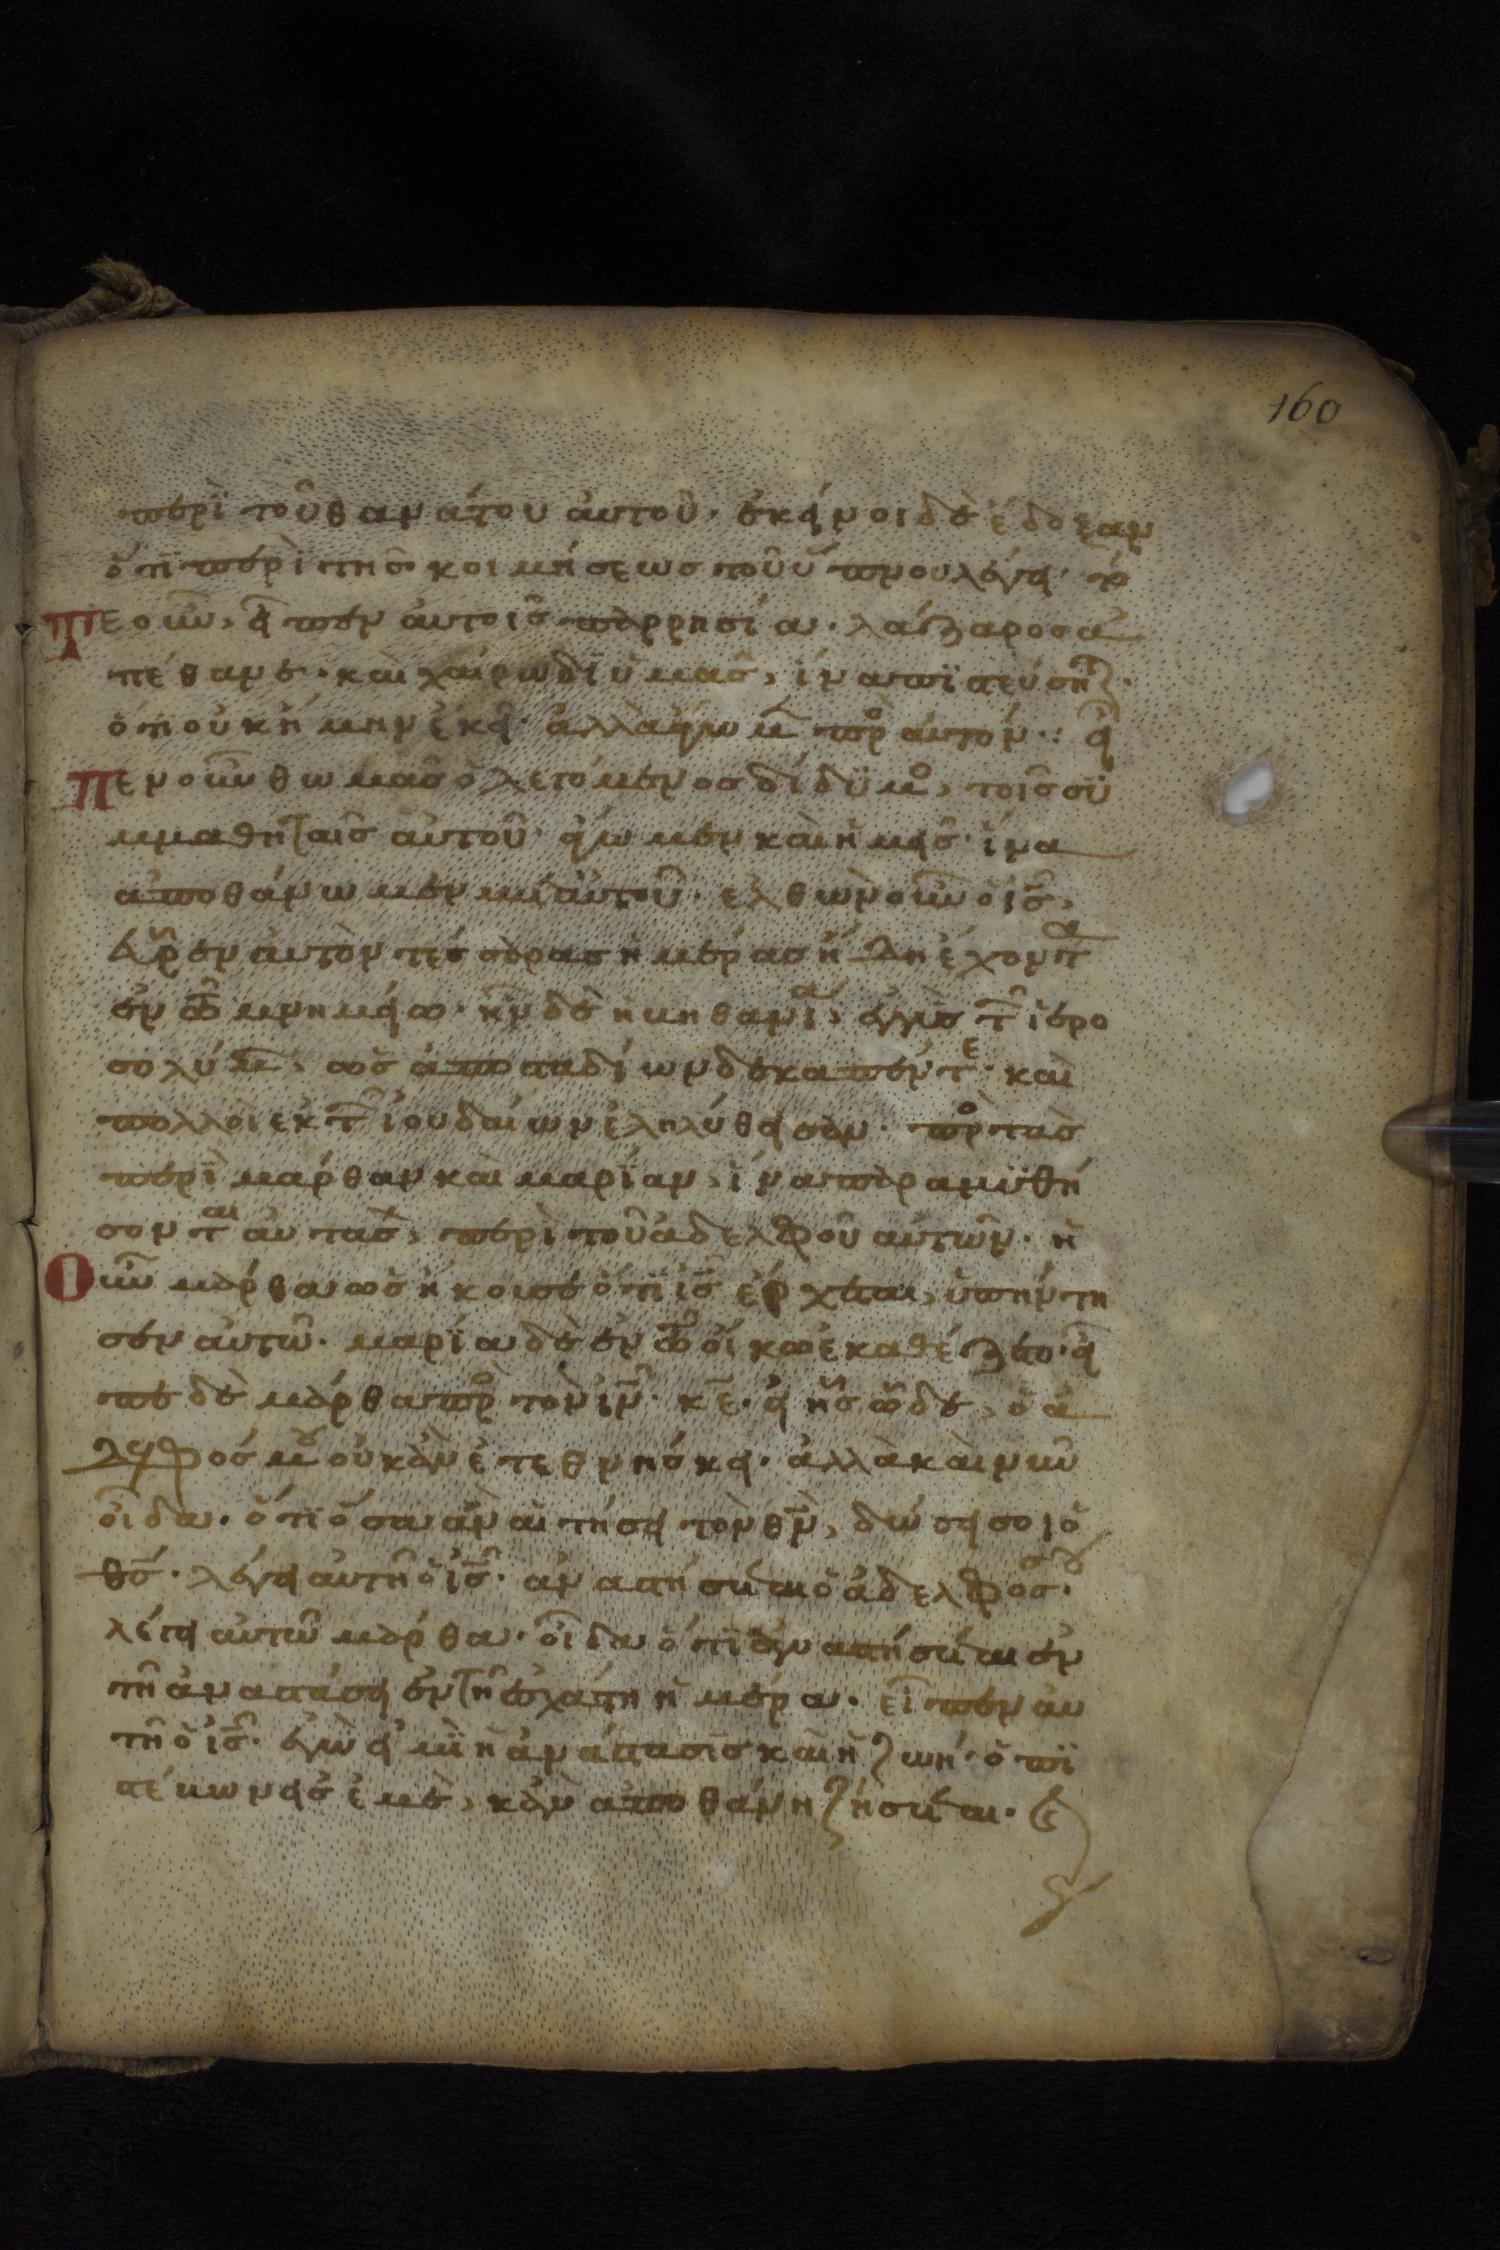 160
περὶ τοῦ θανάτου αὐτοῦ· ἐκεῖνοι δὲ ἔδοξαν
ὅτι περὶ τῆς κοιμήσεως τοῦ ὕπνου λέγει· τό
τε οὖν, εἶπεν αὐτοῖς παρρησία· λάζαρος ἀ
πέθανε· καὶ χαίρω δι ὑμᾶς, ἵνα πιστεύσητε·
ὅτι οὐκ ἤμην ἐκεῖ· ἀλλὰ ἄγωμεν πρὸς αὐτόν· εἶ
πεν οὖν θωμᾶς ὁ λεγόμενος δίδυμος, τοῖς συ
μμαθηταῖς αὐτοῦ· ἄγωμεν καὶ ἡμεῖς· ἵνα
ἀποθάνωμεν μετ αὐτοῦ· ἐλθὼν οὖν ὁ ι̅ς̅,
εὗρεν αὐτὸν τέσσαρας ἡμέρας ἤδη ἔχοντα
ἐν τῶ μνημείω· ἦν δὲ ἡ βηθανία, ἐγγὺς τῶν ἱερο
σολύμων, ὡς ἀπὸ σταδίων δεκαπέντε· καὶ
πολλοὶ ἐκ τῶν ἰουδαίων ἐληλύθεισαν· πρὸς τὰς
περὶ μάρθαν καὶ μαρίαν, ἵνα παραμυθή
σονται αὐτὰς, περὶ τοῦ ἀδελφοῦ αὐτῶν· ἡ
οὖν μάρθα ὡς ἤκουσε ὅτι ι̅ς̅ ἔρχεται, ὑπήντη
σεν αὐτῶ· μαρία δὲ ἐν τῶ οἴκω ἐκαθέζετο· εἶ
πε δὲ μάρθα πρὸς τὸν ι̅ν̅· κ̅ε̅· εἰ ἦς ὧδε, ὁ ἀ
δελφός μου οὐκ ἂν ἐτεθνήσκει· ἀλλὰ καὶ νῦν
οἶδα· ὅτι ὅσα ἂν αἰτήσει τὸν θ̅ν̅, δώσει σοι ὁ
θ̅ς̅· λέγει αὐτῆ ὁ ι̅ς̅· ἀναστήσεται ὁ ἀδελφός σου·
λέγει αὐτῶ μάρθα· οἶδα ὅτι ἀναστήσεται ἐν
τῆ ἀναστάσει ἐν τῆ ἐσχάτη ἡμέρα· εἶπεν αὐ
τῆ ὁ ι̅ς̅· ἐγώ εἰμι ἡ ἀνάστασις καὶ ἡ ζωή· ὁ πι
στέυων εἰς ἐμὲ, κἂν ἀποθάνη ζήσεται·